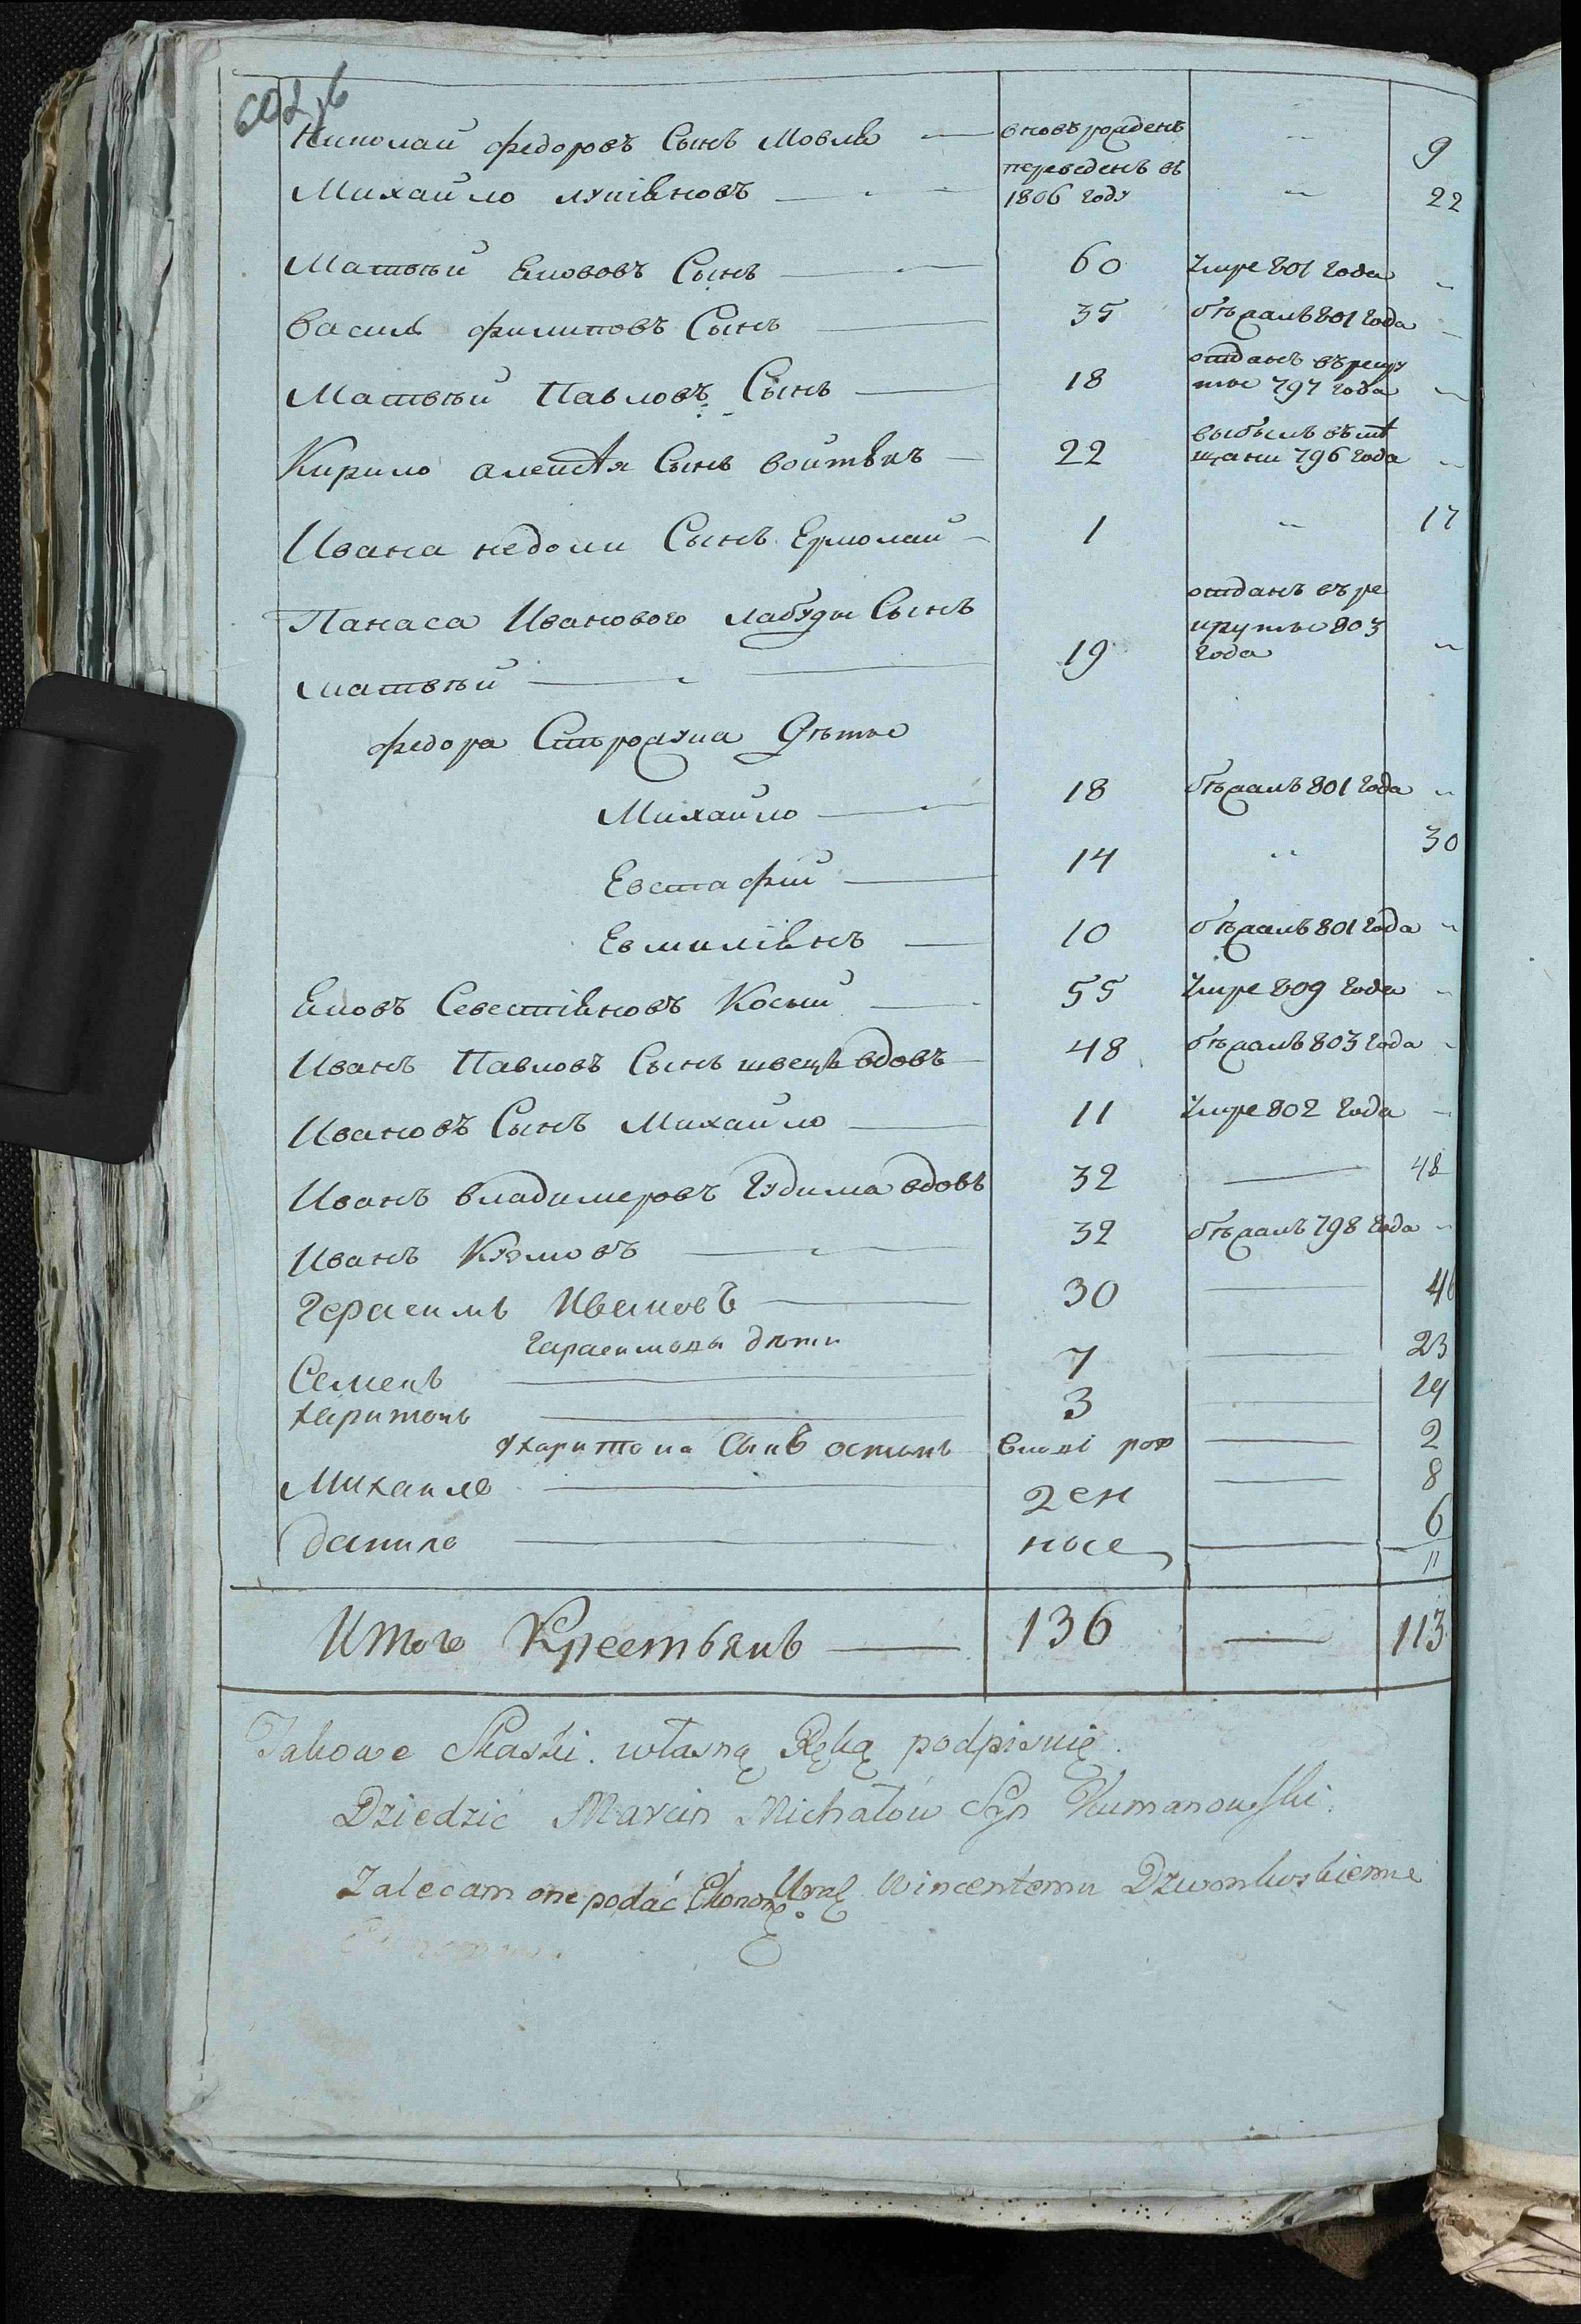 Николай Федоровъ Сынъ Мовля — вновь рожденъ " 9
переведенъ въ
Михайло лукіяновъ — 1806 году " 22
Матвѣй Якововъ Сынъ — 60 Умре 801 года "
Василь Филиповъ Сынъ — 35 бѣжалъ 801 года "
отданъ въ рекру
Матвѣй Павловъ Сынъ — 18 ты 797 года "
выбылъ въ мѣ
Кирило алексѣя Сынъ войтвкъ — 22 щани 796 года "
Ивана недоли Сынъ Ермолай — 1 " 17
отданъ въ ре
Панаса Иванового лабуды Сынъ круты 803
Матвѣй — 19 года "
Федора Строжука Дѣты
Михайло — 18 бѣжалъ 801 года "
Евстафій — 14 " 30
Емиліянъ — 10 бѣжалъ 801 года "
Яковъ Севестіяновъ Косый — 55 Умре 809 года "
Иванъ Павловъ Сынъ швецъ вдовъ — 48 бѣжалъ 803 года "
Ивановъ Сынъ Михайло — 11 Умре 802 года "
Иванъ владимеровъ Гудима вдовъ 32 — 48
Иванъ Кузмовъ — 32 бѣжалъ 798 года "
Герасимъ Ивановъ — 30 — 46
Гарасимовы дѣти
Семенъ — 7 — 23
харитонъ — 3 — 19
Ухаритона Сынъ остапъ рож — 2
Михайло — ден — 8
данило — ные — 6
"
Итого Крестьянъ — 136 — 113
Takowe Skaski. własną Ręką podpisuię.
Dziedzić Marcin Michałow Syn Kumanowski.
Zalecam one podać Ekonom. Wincentemu Dziombowskiemu